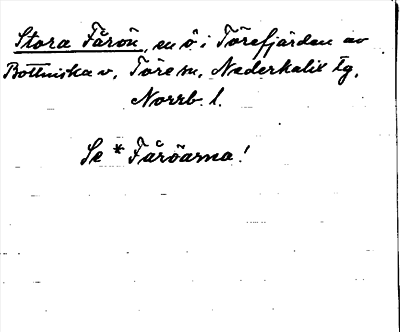 Stora Fårön, en ö i Törefjärden av
Bottniska v., Töre sn, Nederkalix tg,
Norrb. l.
Se * Fåröarna!